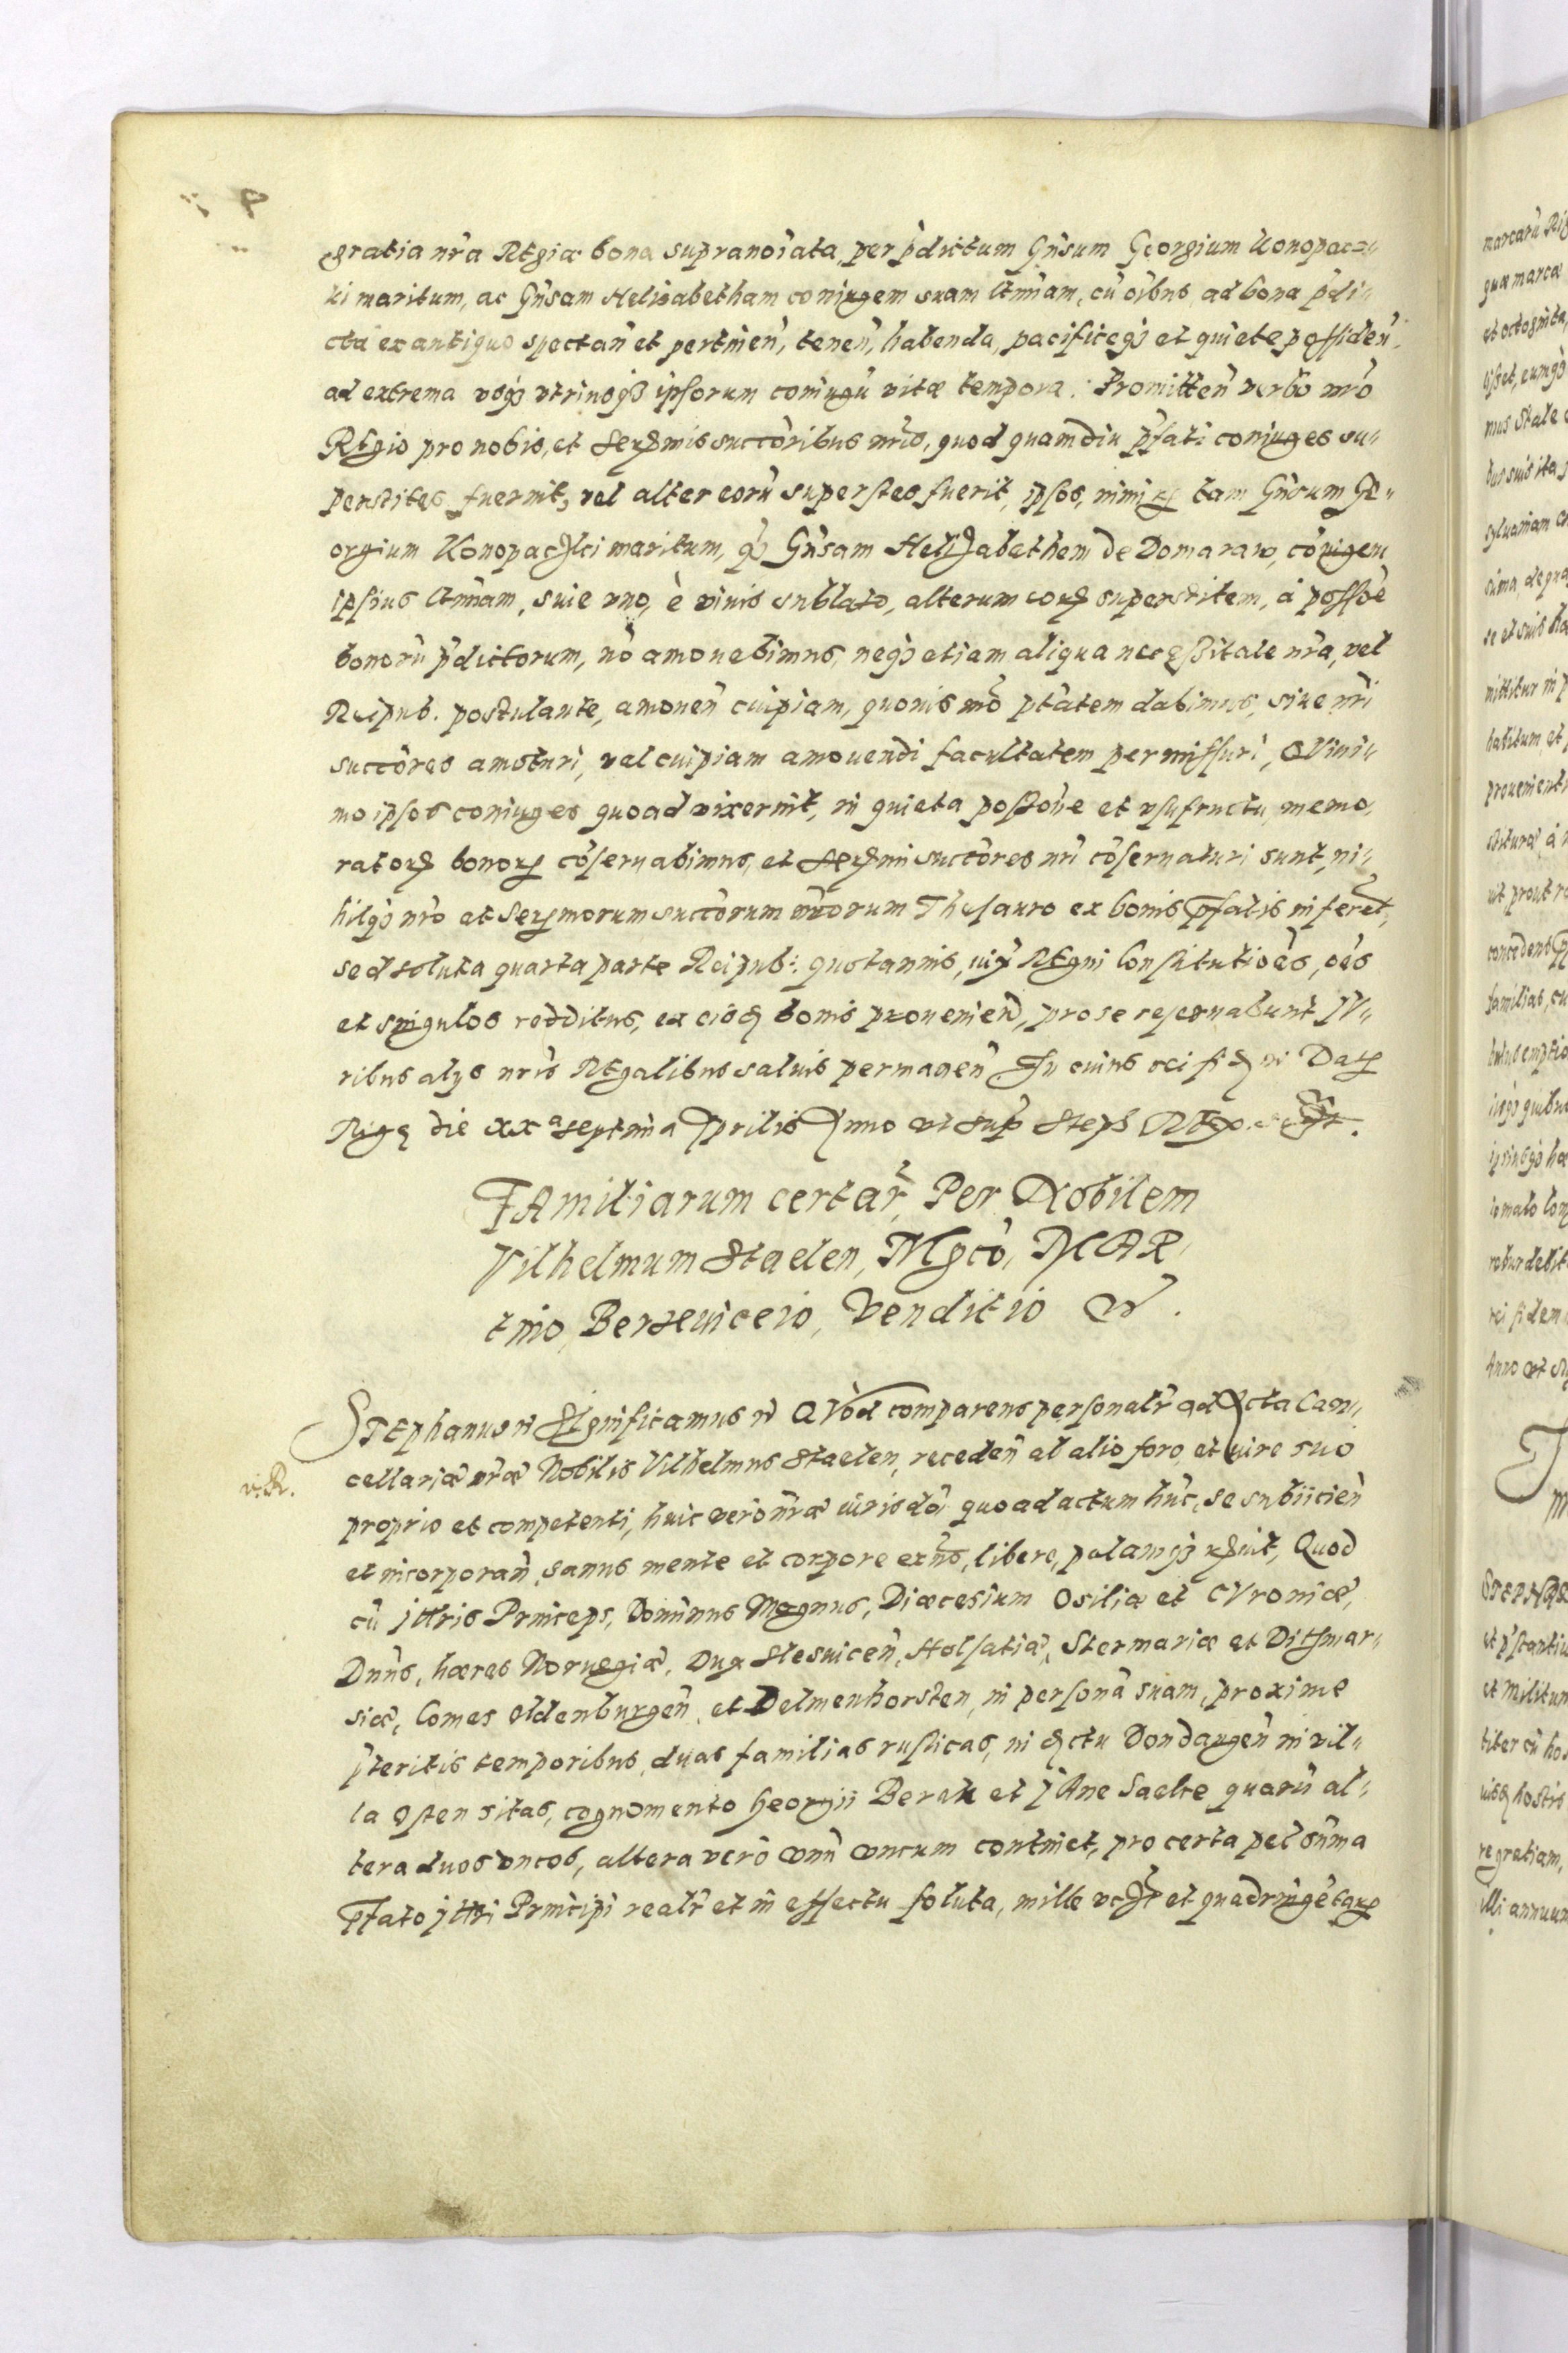 gratia nr̃a Regia bona supranoĩata, per p̃dictum Gñsum Georgium Konopac-
ki maritum, ac Gñsam Helisabetham coniugem suam Annam, cũ oĩbus ad bona p̃di-
cta ex antiquo spectañ et pertineñ, teneñ, habenda, pacificeq3 et quiete possideñ.
ad extrema vsq3 vtriusq3 ipsorum coniugũ vitæ tempora. Promitteñ verbo nr̃o
Regio pro nobis, et Sermis succoribus nr̃is, quod quamdiu p̃fati coniuges su-
perstites fuerint, vel alter eorũ superstes fuerit, ipsos, nimiꝝ tam Gñsum Ge-
orgium Konopaczki maritum, q3 Gñsam Helizabethem de Domaraw, cõiugem
ipsius Annam, siue vno, è viuis sublato, alterum eorꝝ superstitem, à possõe
bonorũ p̃dictorum, nõ amouebimus, neq3 etiam aliqua necessitate nr̃a, vel
Reipub. postulante, amoueñ cuipiam, quouis mõ ptãtem dabimus, siue nr̃i
succores amoturi, vel cuipiam amouendi facultatem permissuri, QVini-
mo ipsos coniuges quoad vixerint, in quieta possõne et vsufructu, memo-
ratorꝝ bonorꝝ cõseruabimus, et Serꝝmi succores nr̃i cõseruaturi sunt, ni-
hilq3 nr̃o et Serꝝmorum succorum nr̃orum Thesauro ex bonis p̃fatis inferet,
sed soluta quarta parte Reipub: quotannis, iux Regni Constitutiões, oẽs
et singulos redditus, ex eisdꝫ bonis proueniend, pro se reseruabunt JV-
ribus alijs nr̃is Regalibus saluis permaneñ In cuius rei fidꝫ Datꝫ
Rigę die xxª septima Aprilis Anno vt sup̃ Steph Rex.
FAmiliarum certar̃, Per Nobilem
Vilhelmum Staelen, Mgco, MAR-
tino, Berzeuiceio, Venditio
STEphanus Significamus QVod comparens personalr̃ ad Acta Can-
v. R.
cellariæ nr̃æ Nobilis Vilhelmus Staelen, recedeñ ab alio foro, et iure suo
proprio et competenti, huic verò nr̃æ iurisdõi quoad actum hũc, se subiicieñ
et incorporañ, sanus mente et corpore exñs, libere, palamq3 Quod
cũ Jllris Princeps, Dominus Magnus, Diæcesium Osiliæ et CVroniæ,
Dnñs, hæres Noruegiæ, Dux Slesuiceñ, Holsatiæ, Stormariæ et Dithmar-
siæ, Comes Oldenburgeñ, et Delmenhorsten, in personã suam, proxime
p̃teritis temporibus, duas familias rusticas, in dꝫctu Dondangeñ in vil-
la Osten sitas, cognomento Georgii Berck et JAne Saelte quarũ al-
tera duos vncos, altera verò vnũ vncum continet, pro certa pec̃ sũma
p̃fato Jllri Principi realr̃ et in effectu soluta, mille et quadringẽtarꝝ